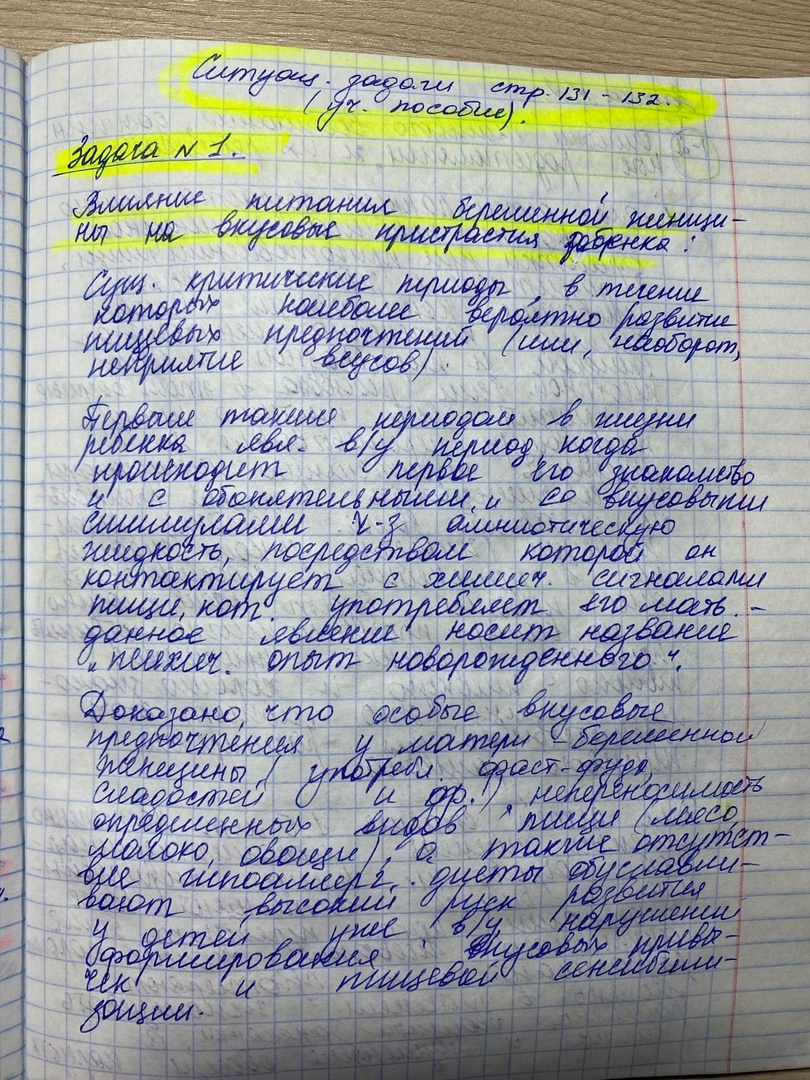 Ситуац. задачи стр. 131 - 132.
(уч. пособие).
Задача N 1.
Влияние питания беременной женщи-
ны на вкусовые пристрастия ребенка:
Сущ. критические периоды, в течение
которых наиболее вероятно развитие
пищевых предпочтений (или, наоборот,
неприятие вкусов).
Первым таким периодом в жизни
ребенка явл. в/у период, когда
происходит первое его знакомство
и с обонятельными, и со вкусовыми
стимулами ч-з амниотическую
жидкость, посредством которой он
контактирует с химич. сигналами
пищи, кот. употребляет его мать. -
данное явление носит название
"психич. опыт новорожденного".
Доказано, что особые вкусовые
предпочтения у матери - беременной
женщины (употребл. фаст-фуда,
сладостей и др.), непереносимость
определенных видов пищи (мясо,
молоко, овощи), а также отсутст-
вие гипоаллерг. диеты обуславли-
вают высокий риск развития
у детей уже в/у нарушений
формирования вкусовых привы-
чек и пищевой сенсибили-
зации.